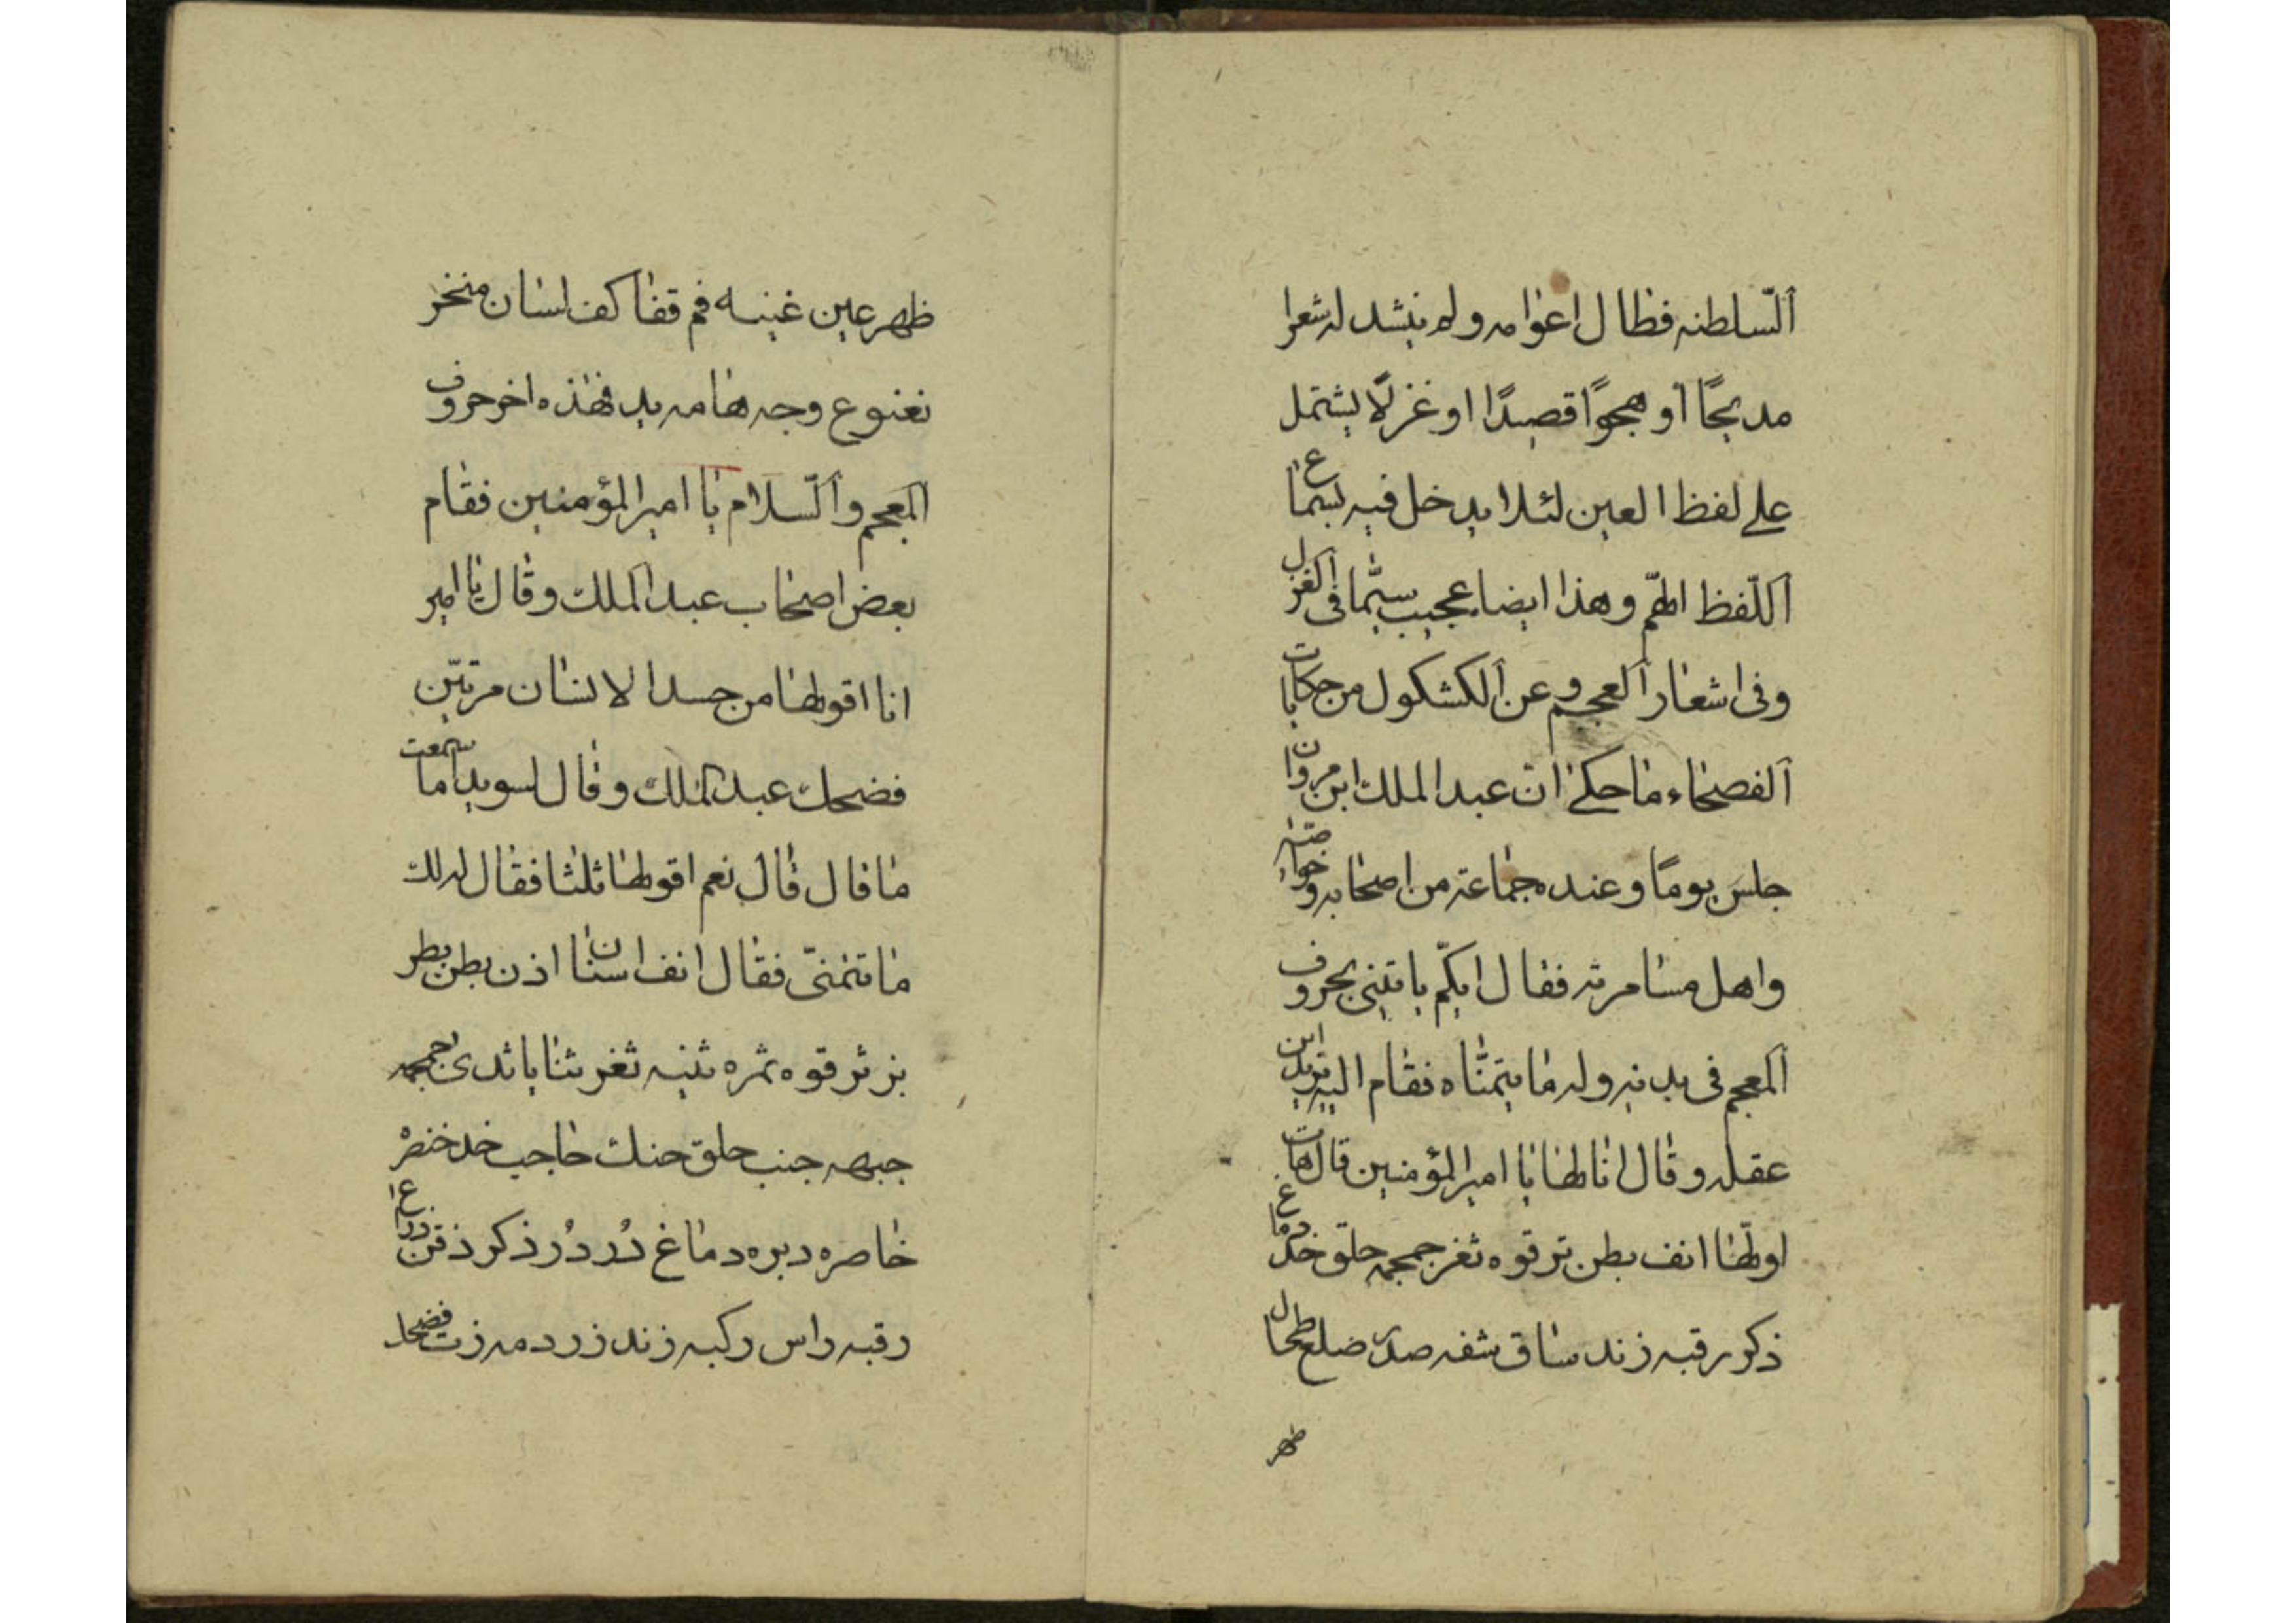 السّلطنه فطال اعوامه ولم ينشد له شعرا
مديحًا أو هجوًا قصيدًا او غزلًا يشتمل
على لفظ العين لئلا يدخل فيه سماع
اللّفظ المتمّ وهذا ايضا عجيب سيّما في الغزل
وفى اشعار العجم و عن الكشكول من حكايات
الفصحاء ما حكى انّ عبد الملك ابن مروان
جلس يومًا وعنده جماعة من اصحابه وخواصّه
واهل مسامرته فقال ايكم ياتينى بحروف
المعجم فى بدنه وله ما يتمنّاه فقام اليه
عقله وقال انا لها يا امير المؤمنين قال هات
اولها انف بطن ترقوه ثغر جمجمه حلق خد دماغ
ذكر رقبه زند ساق شفه صدر ضلع طحال
ظهر
ظهر عين غينه فم قفا كف لسان منخر
نغنوغ وجه هامه يد فهذه اخر حروف
المعجم والسّلام يا امير المؤمنين فقام
بعض اصحاب عبد الملك وقال يا امير
انا اقولها من جسد الانسان مرتين
فضحك عبد الملك وقال لسويد اما سمعت
ما قال قال نعم اقولها ثلثا فقال له لك
ما تتمنّى فقال انف اسنان اذن بطن بظر
بز ثر قوه ثمره ثينه ثغر ثنايا ثدى جمجمه
جبهه جنب حلق حنك حاجب خد خنصر
خاصره دبره دماغ دُردُر ذكر ذقن ذراع
رقبه راس ركبه زند زردمه زت فضحك